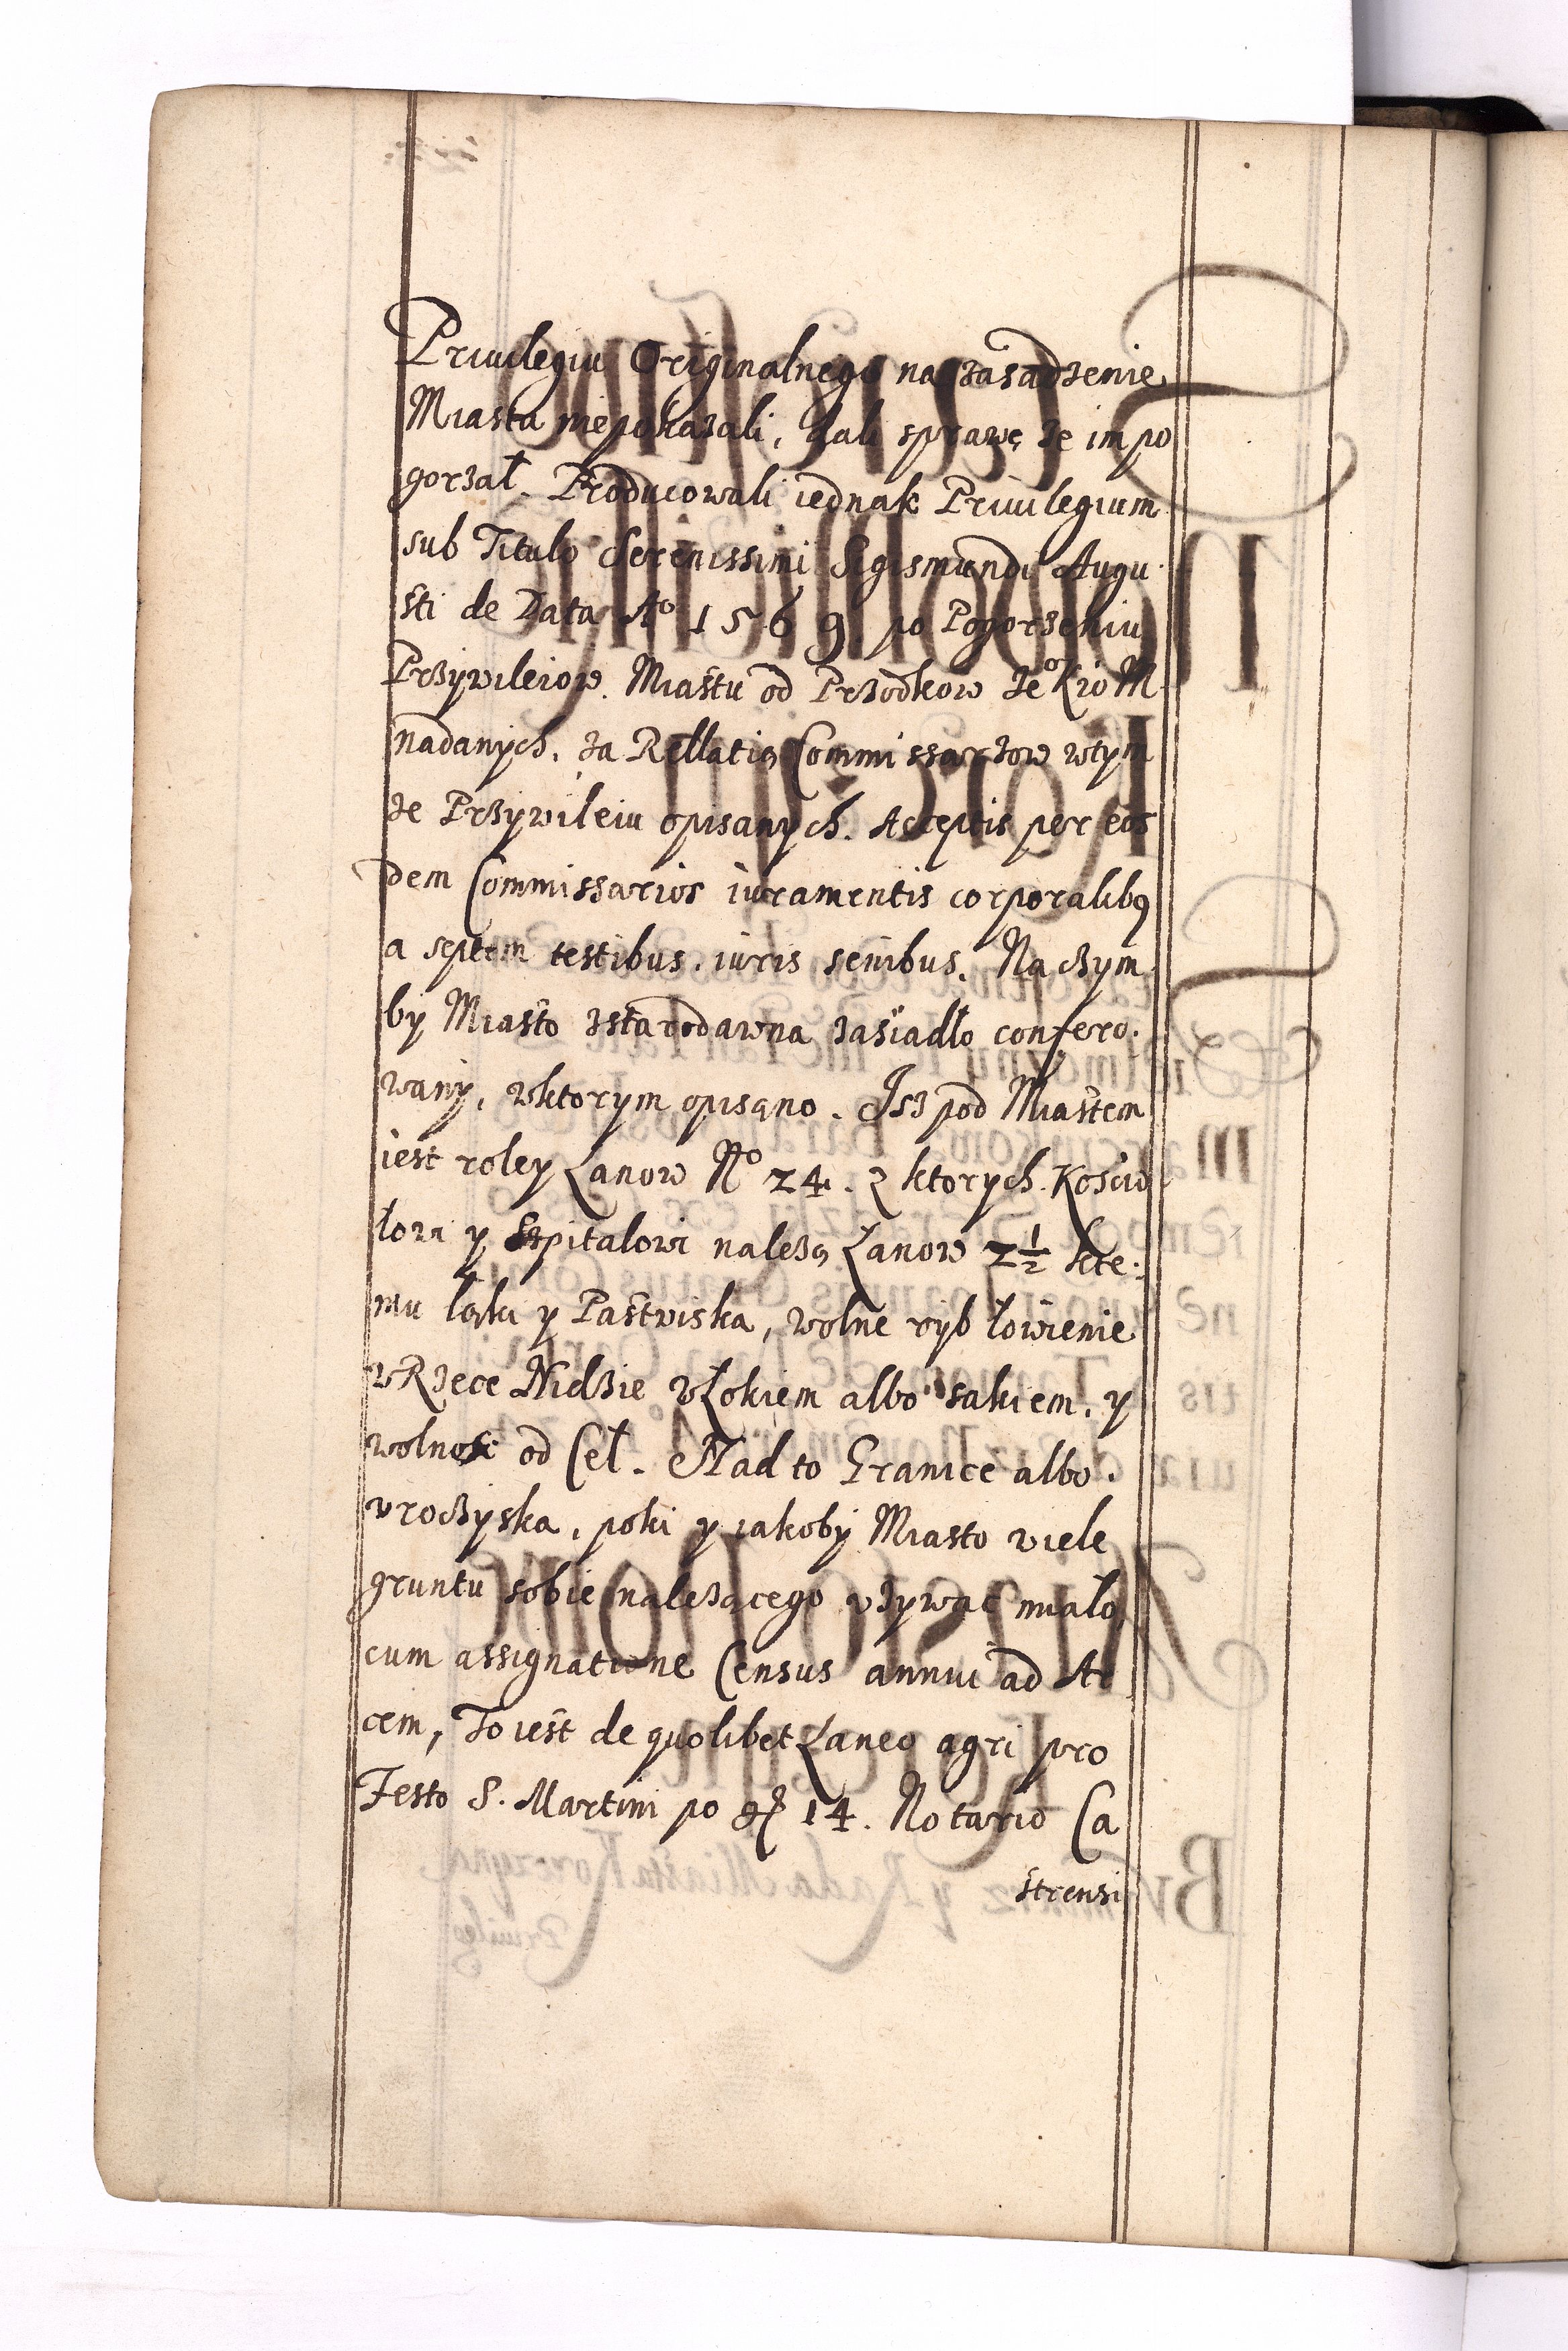 Priuilegiu Originalnego na zasadzenie
Miasta niepokazali, dali sprawę ze im po
gorzał. Producowali iednak Priuilegium
sub Titulo Serenissimi Sigismundi Augu
sti de Data Aº 1569. po Pogorzeniu
Przywileiow. Miastu od Przodkow Jeº Kro M
nadanych, za Rellatią Commissarzow wtym
ze Przywileiu opisanych. Acceptis per eos
dem Commissarios iuramentis corporalibq
a septem testibus, iuris senibus. Na czym
by Miasto zstarodawna zasiadło confero.
wany, wktorym opisano. Isz pod Miastem
iest roley Łanow Nº 24. z ktorych Koscio
łowi y Szpitalowi należą Łanow 2½ kte.
mu łąki y Pastwiska, wolne ryb łowienie
w Rzece Nidzie włokiem albo sakiem, y
wolnosc od Ceł. Nad to Granice albo.
vroczyska, poki y iakoby Miasto wiele
gruntu sobie należącego vzywac miało
cum assignatione Census annui ad Ar
cem, To iest de quolibet Laneo agri pro
Festo S. Martini po gr 14. Notario Ca
strensi